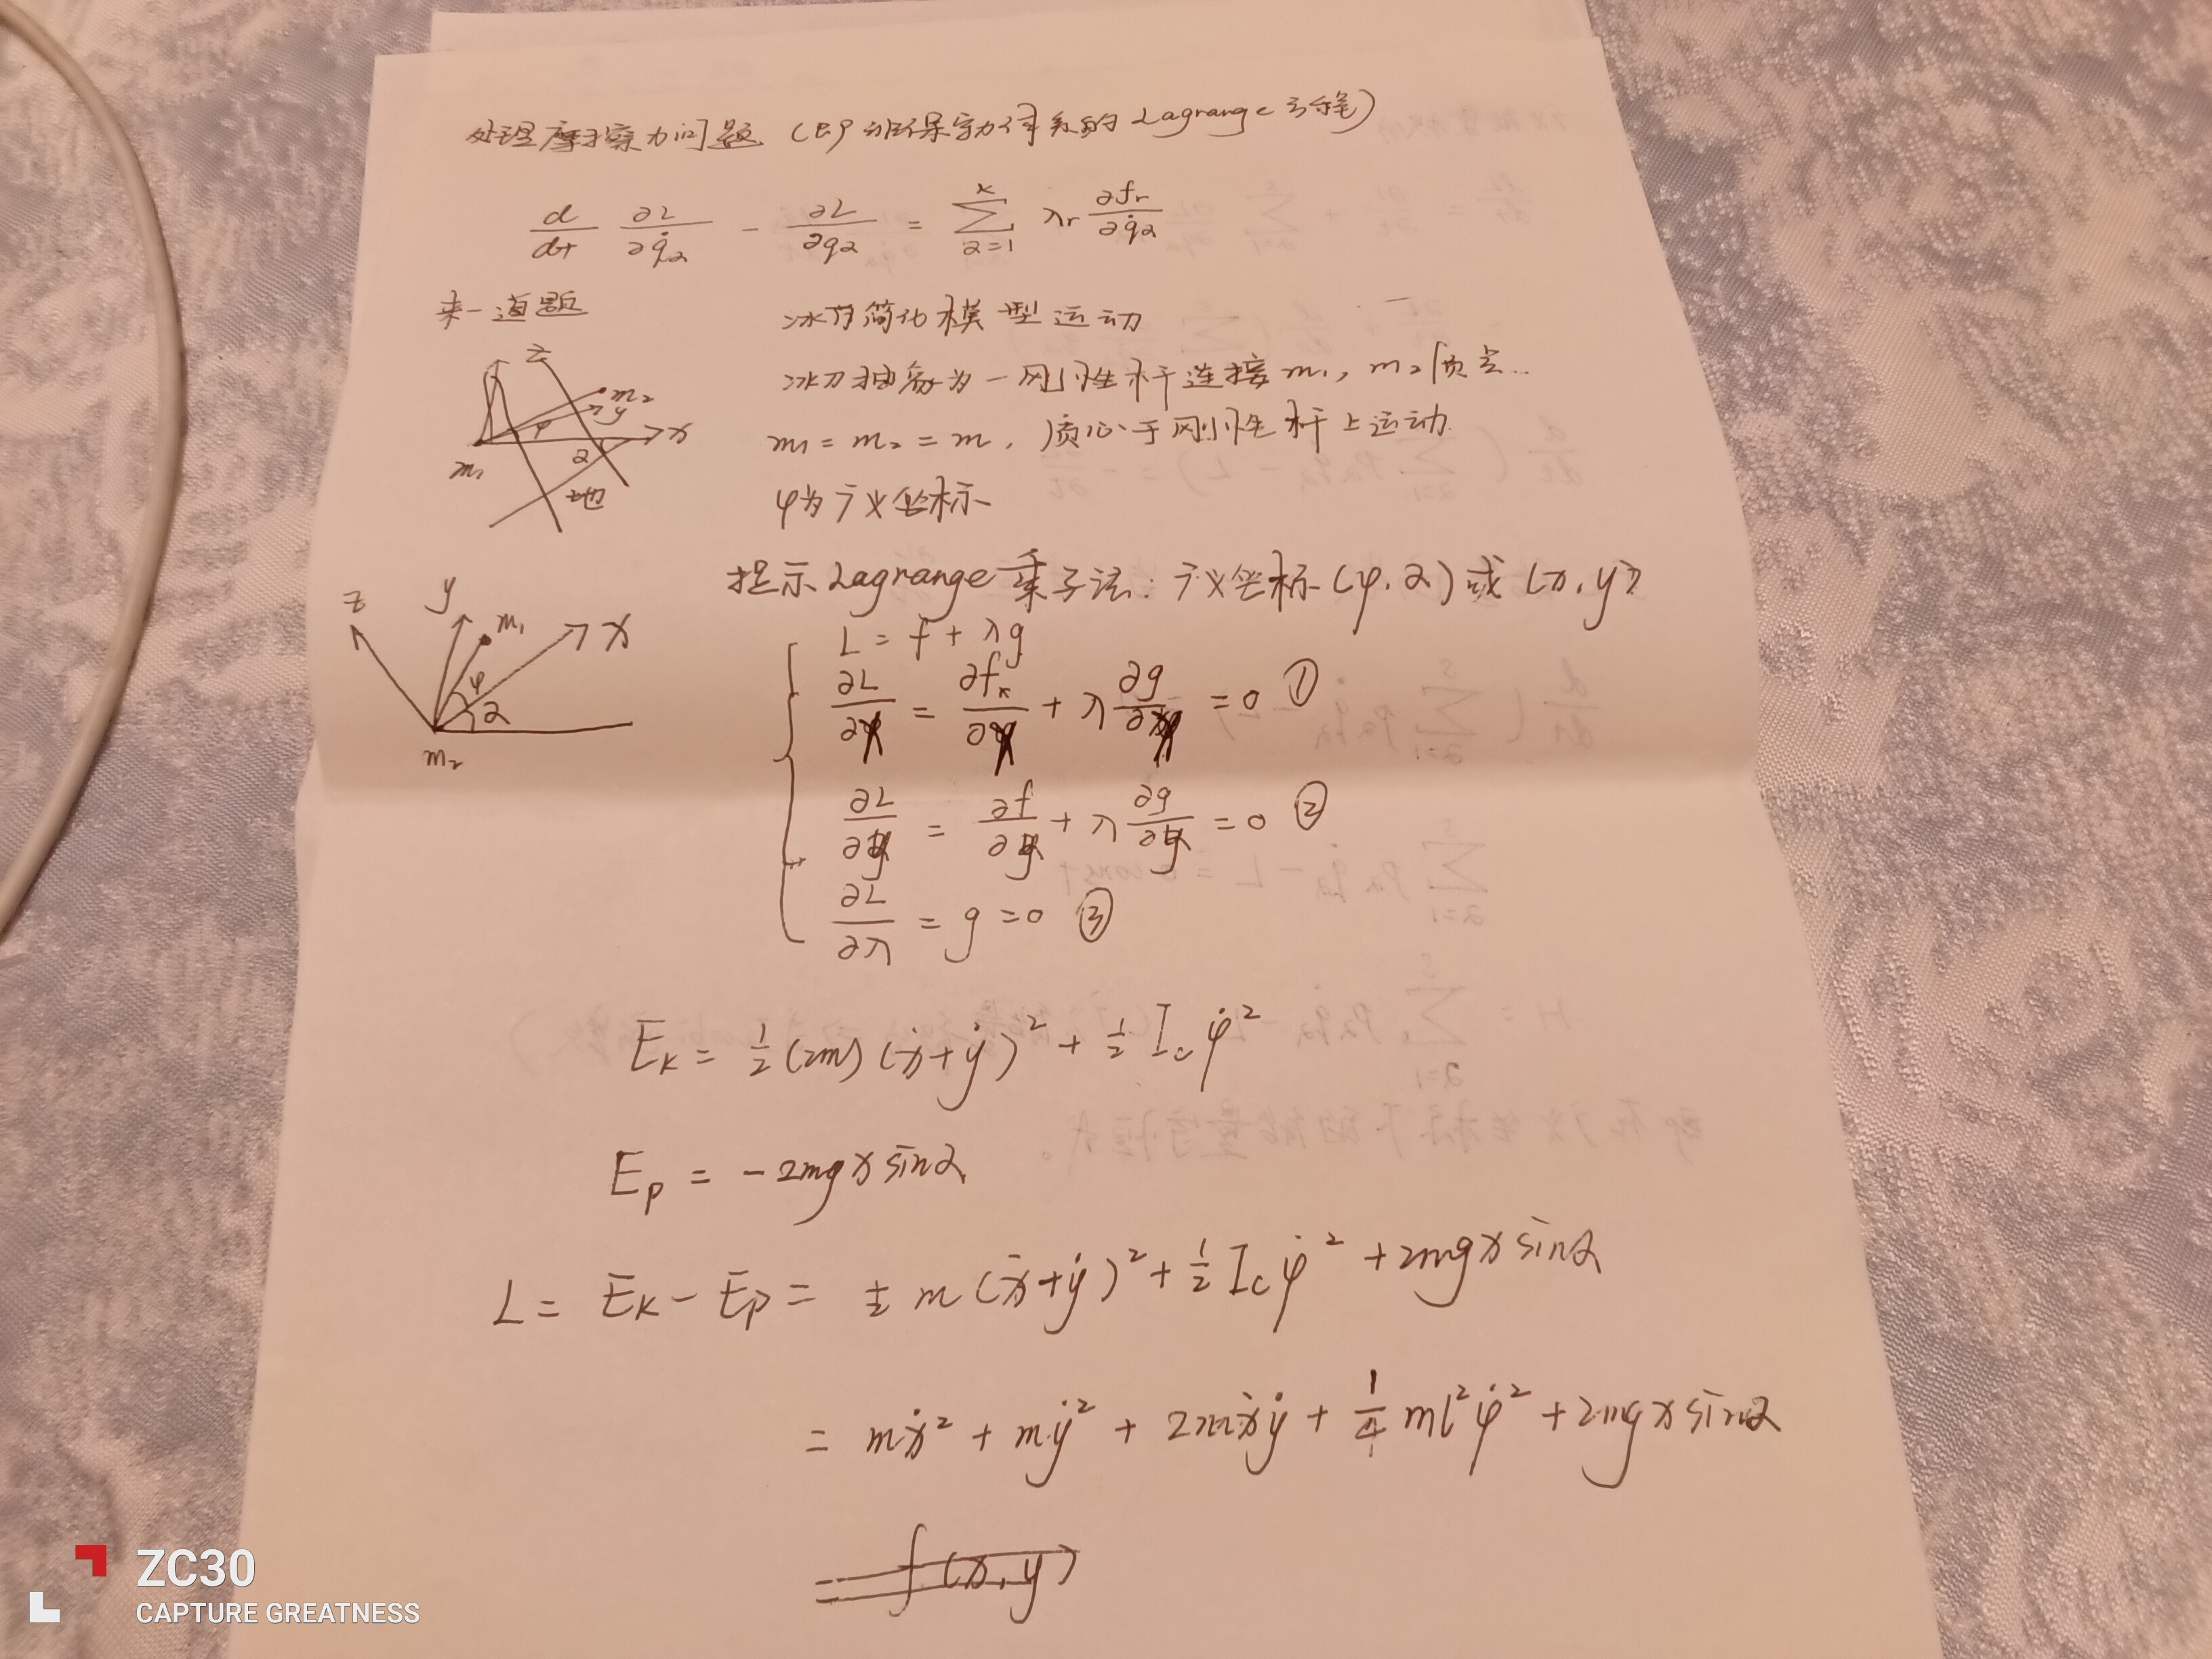 处理摩擦力问题 (即非保守力体系的Lagrange方程)
d/dt ∂L/∂q̇α - ∂L/∂qα = Σ_{α=1}^{k} λr ∂fr/∂q̇α
来一道题
冰刀简化模型运动
冰刀抽象为一刚性杆连接m₁, m₂质点..
m₁ = m₂ = m, 质心于刚性杆上运动.
φ为广义坐标
z
m₂
y
φ
x
m₁
α
地
提示Lagrange乘子法: 广义坐标(φ, α)或(x, y)
L = f + λg
∂L/∂x = ∂fx/∂x + λ ∂g/∂x = 0 ①
∂L/∂y = ∂f/∂y + λ ∂g/∂y = 0 ②
∂L/∂λ = g = 0 ③
z
y
m₁
x
φ
α
m₂
E_K = ½(2m)(ẋ+ẏ)² + ½ I_c φ̇²
E_p = -2mgx sinα
L = E_K - E_p = ½ m(ẋ+ẏ)² + ½ I_c φ̇² + 2mgx sinα
= mẋ² + mẏ² + 2mẋẏ + 1/4 ml²φ̇² + 2mgx sinα
= f(x, y)
ZC30
CAPTURE GREATNESS